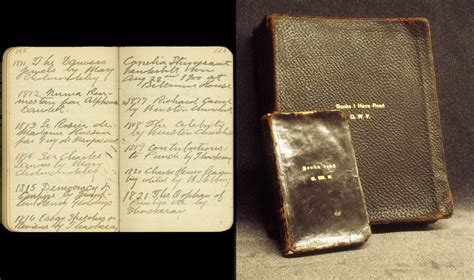 122
1811 The Danvers
Jewels by Mary
Cholmondeley
1812 Numa Rou-
mestan par Alphonse
Daudet.
1813 Le Rosier de
Madame Husson
par Guy de Maupassant
1814 Sir Charles
Danvers by Mary
Cholmondeley
1815 Democracy &
Empire by
Henry Giddings
1816 Essays Sketches &
Reviews by Thackeray
123
Cornelia Stuyvesant
Vanderbilt born
Aug 22nd 1900 at
Biltmore House.
1817 Richard Carvel
by Winston Churchill
1818 The Celebrity
by Winston Churchill
1819 Contributions
to Punch by Thackeray
1820 Charles Henry Pearson
edited by
1821 The Orphan of
Pimlico etc by
Thackeray
Books I Have Read
G. W. V.
Books read
G. W. V.